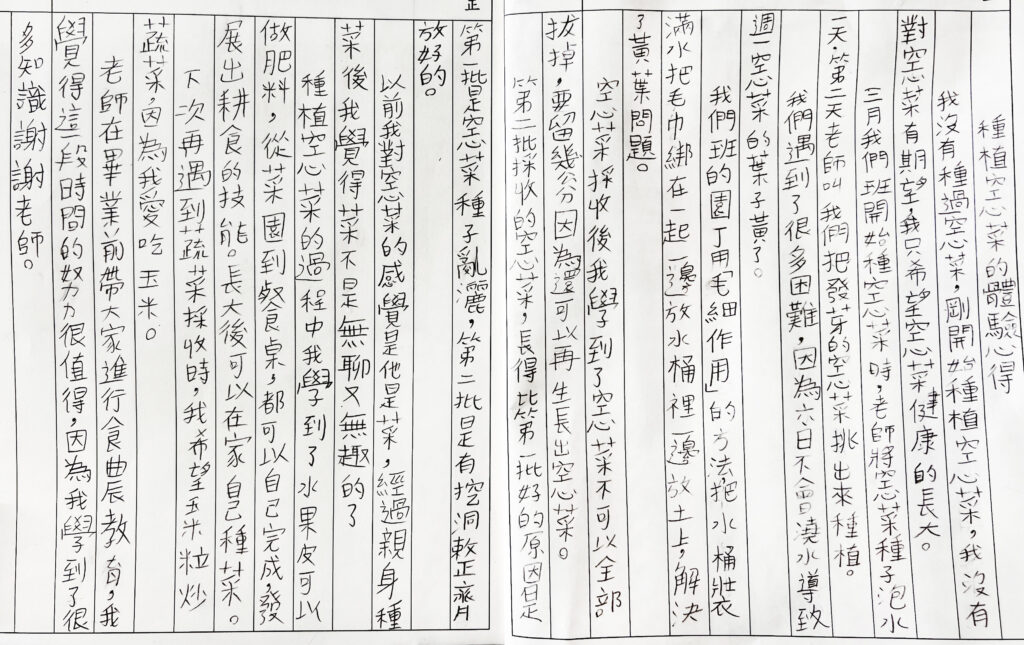 種植空心菜的體驗心得
我沒有種過空心菜,剛開始種植空心菜,我沒有
對空心菜有期望,我只希望空心菜健康的長大。
三月我們班開始種空心菜時,老師將空心菜種子泡水
一天,第二天老師叫我們把發芽的空心菜挑出來種植。
我們遇到了很多困難,因為六日不會澆水導致
週一空心菜的葉子黃了。
我們班的園丁用「毛細作用」的方法,把水桶裝
滿水把毛巾綁在一起一邊放水桶裡一邊放土上,解決
了黃葉問題。
空心菜採收後我學到了空心菜不可以全部
拔掉,要留幾公分因為還可以再生長出空心菜。
第二批採收的空心菜,長得比第一批好的原因是
第一批是空心菜種子亂灑,第二批是有挖洞整齊
放好的。
以前我對空心菜的感覺是他是菜,經過親身種
菜後我覺得菜不是無聊又無趣的了
種植空心菜的過程中我學到了水果皮可以
做肥料,從菜園到餐桌,都可以自己完成,發
展出耕食的技能。長大後可以在家自己種菜。
下次再遇到蔬菜採收時,我希望玉米粒炒
蔬菜,因為我愛吃玉米。
老師在畢業前帶大家進行食農教育,我
覺得這一段時間的努力很值得,因為我學到了很
多知識謝謝老師。